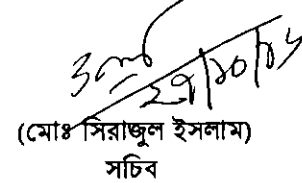 (মোঃ সিরাজুল ইসলাম)
সচিব